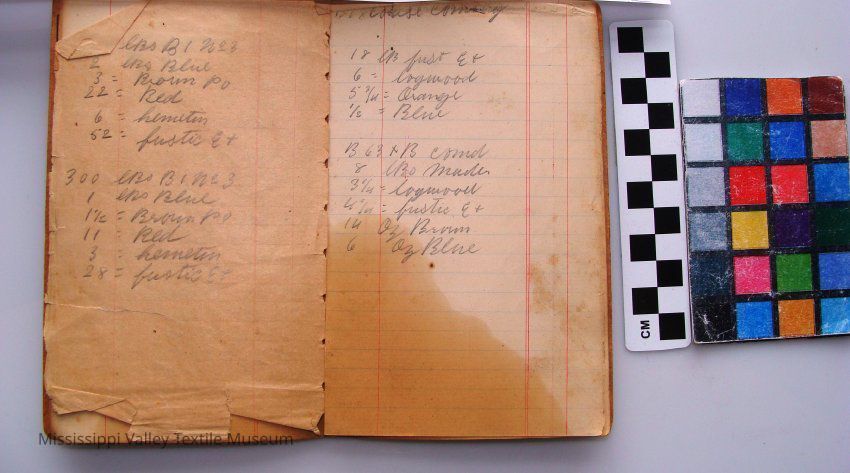 lbs B 1 No 3
2 lbs Blue
3 = Brown po
22 = Red
6 = hemetin
52 = fustic Ex
300 lbs B 1 No 3
1 lbs Blue
1 1/2 = Brown po
11 = Red
3 = hemetin
28 = fustic Ex
18 lb fust Ex
6 = logwood
5 3/4 = Orange
1/2 = Blue
B 63 + B comd
8 lbs Mader
3 3/4 = logwood
= fustic Ex
14 Oz Brown
6 Oz Blue
CM
Mississippi Valley Textile Museum